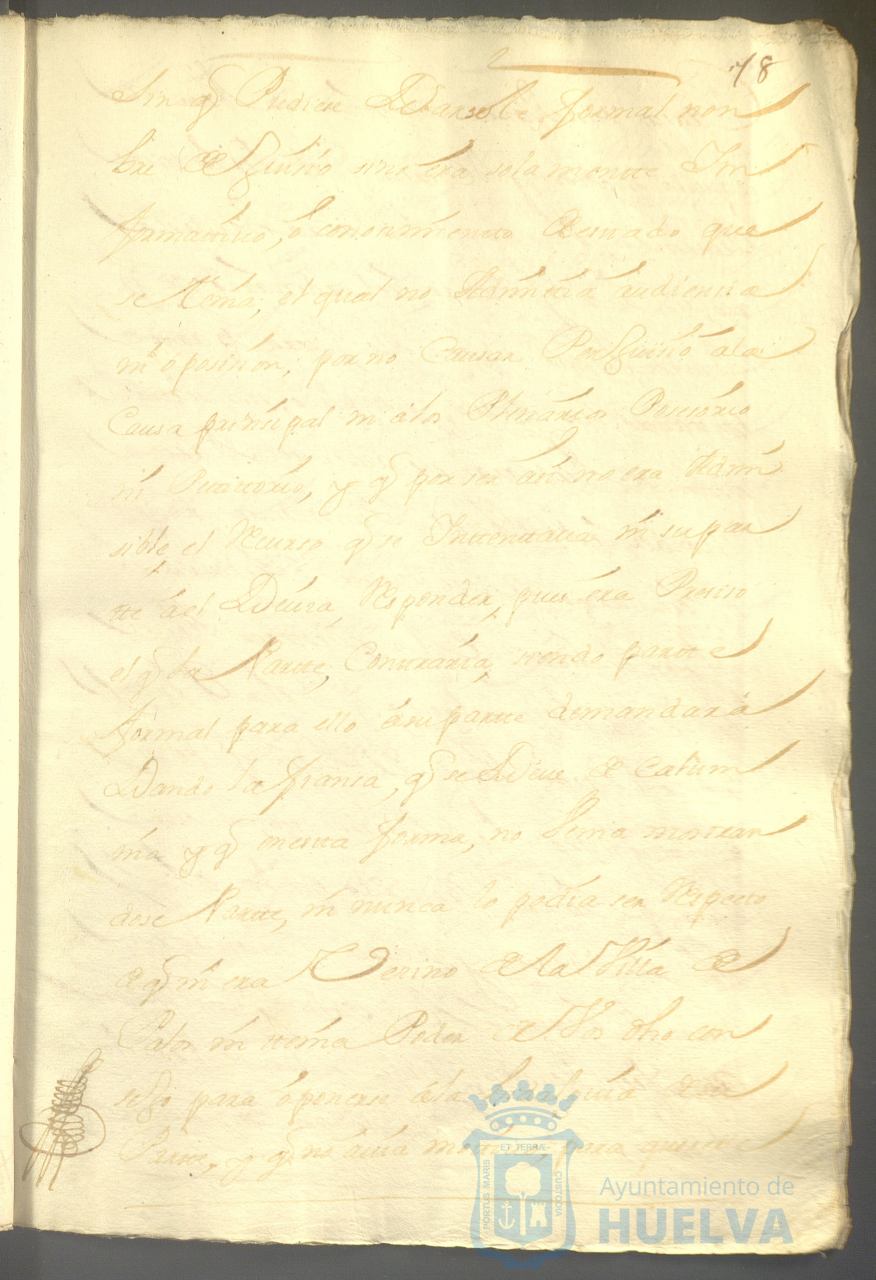 78
Sin q̃ Pudiere Darsele formal nom
bre de Juisio sino era solamente In
formativo, ô conosimiento de estado que
se tenia, el qual no Admitia audiencia
ni oposision, por no Causar Perjuisio a la
Causa prinsipal ni â los Plenarios Posesorio
ni Petitorio, y q̃ por ser asi no era Admi
sible, el Recurso q̃ se Intentava ni su par
te â el Devia, Responder, pues êra Presiso
el q̃ la Parte, Contraria, siendo parte
formal para ello â su parte demandara
Dando la fianza, q̃ se Deve de Calum
nia y q̃ en esta forma, no Venia mostran
dose Parte, ni nunca lo podia ser Respecto
de q̃ ni era Vecino de la Villa de
Palos ni tenia Poder de Vos dho con
sejo para ôponerse â la
Parte, y q̃ no avia para
ET TERRAE
PORTUS MARIS
CUSTODIA
Ayuntamiento de
HUELVA